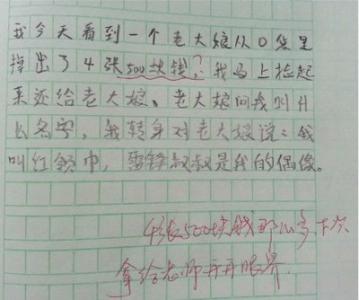 我今天看到一个老大娘从口袋里
掉出了4张500块钱？我马上捡起
来还给老大娘、老大娘问我叫什
么名字，我转身对老大娘说：我
叫红领巾，雷锋叔叔是我的偶像。
4张500块钱那么多,下次
拿给老师开开眼界.